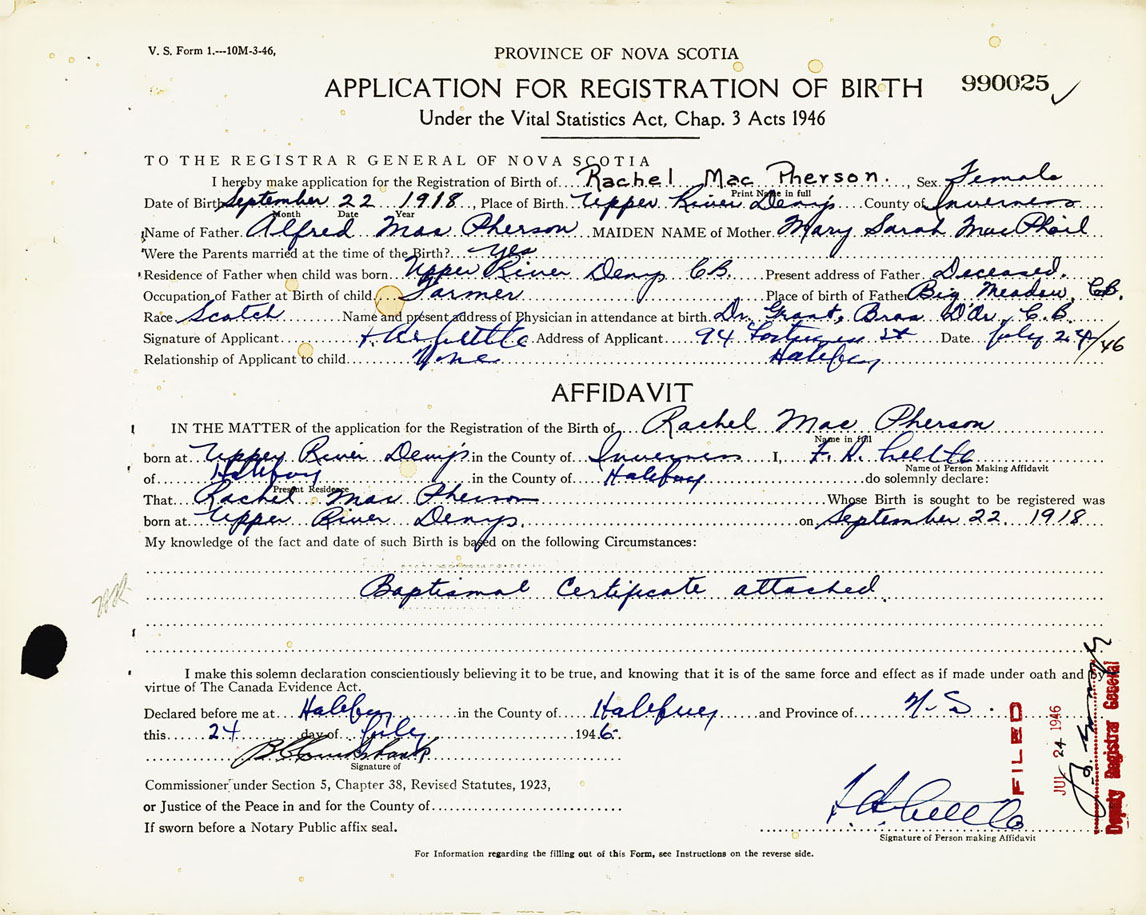 V. S. Form 1.---10M-3-46,
PROVINCE OF NOVA SCOTIA
APPLICATION FOR REGISTRATION OF BIRTH 990025 ✓
Under the Vital Statistics Act, Chap. 3 Acts 1946
TO THE REGISTRAR GENERAL OF NOVA SCOTIA
I hereby make application for the Registration of Birth of Rachel Mac Pherson. , Sex Female
Print Name in full
Date of Birth September 22 1918 , Place of Birth Upper River Denys County of Inverness
Month Date Year
Name of Father Alfred Mac Pherson MAIDEN NAME of Mother Mary Sarah MacPhail
Were the Parents married at the time of the Birth? Yes
Residence of Father when child was born Upper River Denys C.B. Present address of Father Deceased.
Occupation of Father at Birth of child Farmer Place of birth of Father Big Meadow, C.B.
Race Scotch Name and present address of Physician in attendance at birth Dr. Grant, Bras D'Or, C.B.
Signature of Applicant Address of Applicant 94 St Date July 24/46
Relationship of Applicant to child None Halifax
AFFIDAVIT
IN THE MATTER of the application for the Registration of the Birth of Rachel Mac Pherson
Name in full
born at Upper River Denys in the County of Inverness I, F. H.
Name of Person Making Affidavit
of Halifax in the County of Halifax do solemnly declare:
Present Residence
That Rachel Mac Pherson Whose Birth is sought to be registered was
born at Upper River Denys. on September 22 1918
My knowledge of the fact and date of such Birth is based on the following Circumstances:
Baptismal Certificate attached.
I make this solemn declaration conscientiously believing it to be true, and knowing that it is of the same force and effect as if made under oath and by
virtue of The Canada Evidence Act.
Declared before me at Halifax in the County of Halifax and Province of N.S.
this 24 day of July 1946.
Signature of
Commissioner under Section 5, Chapter 38, Revised Statutes, 1923,
or Justice of the Peace in and for the County of
If sworn before a Notary Public affix seal.
F. H.
Signature of Person making Affidavit
FILED
JUL 24 1946
Deputy Registrar General
For Information regarding the filling out of this Form, see Instructions on the reverse side.